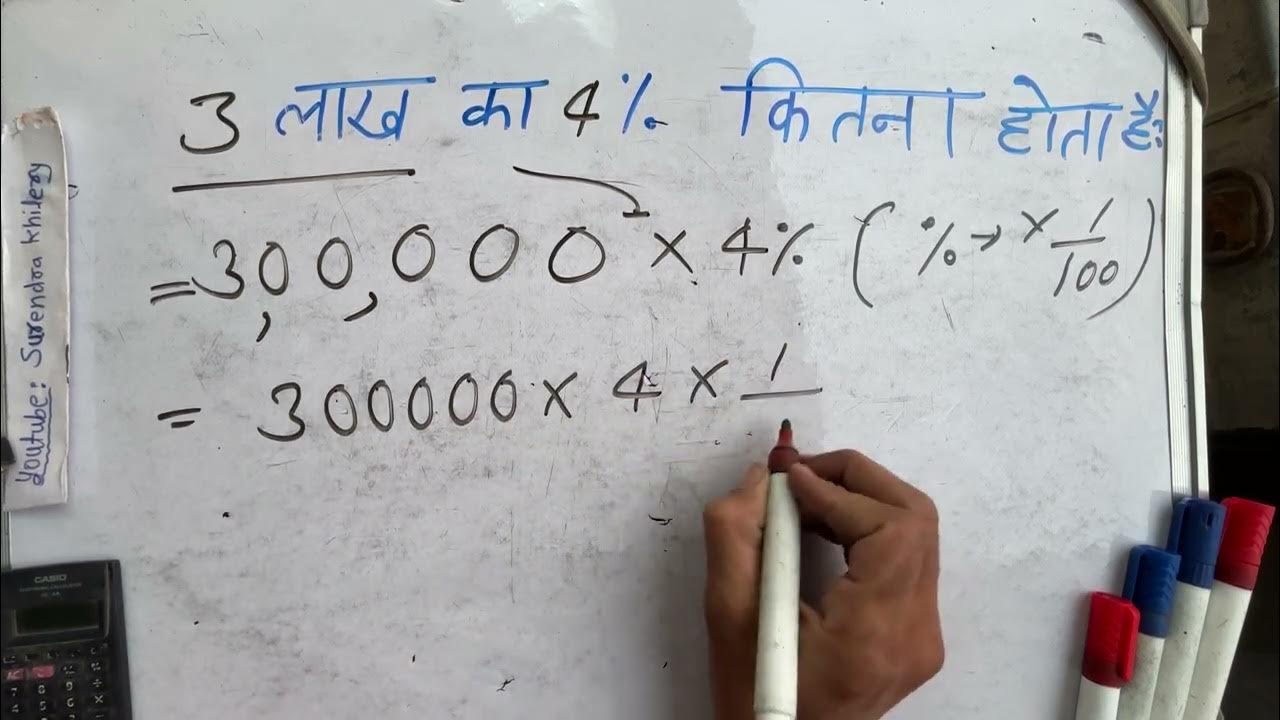 3 लाख का 4% कितना होता है?
=3,00,000 × 4% (% → × 1/100)
= 300000 × 4 × 1/
Youtube: Surendra Khilery
CASIO